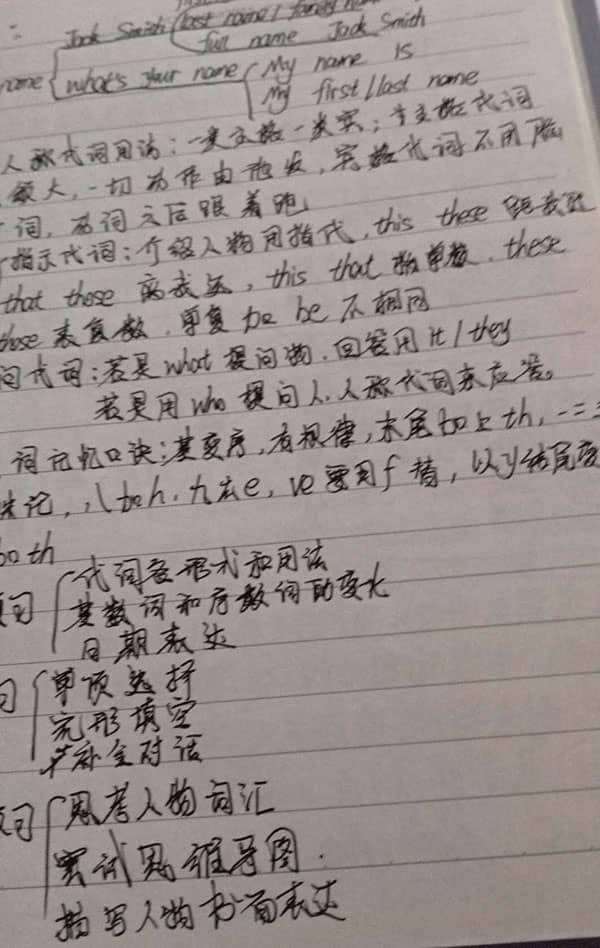 Jack Smith (last name / family
full name Jack Smith
name what's your name My name is
My first / last name
人称代词用法：一变主格一变宾；主格代词
领大，一切动作由他发，宾格代词不用
词，名词之后跟着跑
指示代词：介绍人物用指代，this these 距我近
that those 离我远，this that 指单数，these
those 表复数，单复 be 不相同
问代词：若是 what 提问物，回答用 it / they
若是用 who 提问人，人称代词来应答。
词记忆口诀：基变序，有规律，末尾加上 th，一二三
八加 h，九去 e，ve 要用 f 替，以 y 结尾变
加 th
代词各形式和用法
基数词和序数词的变化
日期表达
单项选择
完形填空
补全对话
思考人物词汇
尝试思维导图．
描写人物书面表达